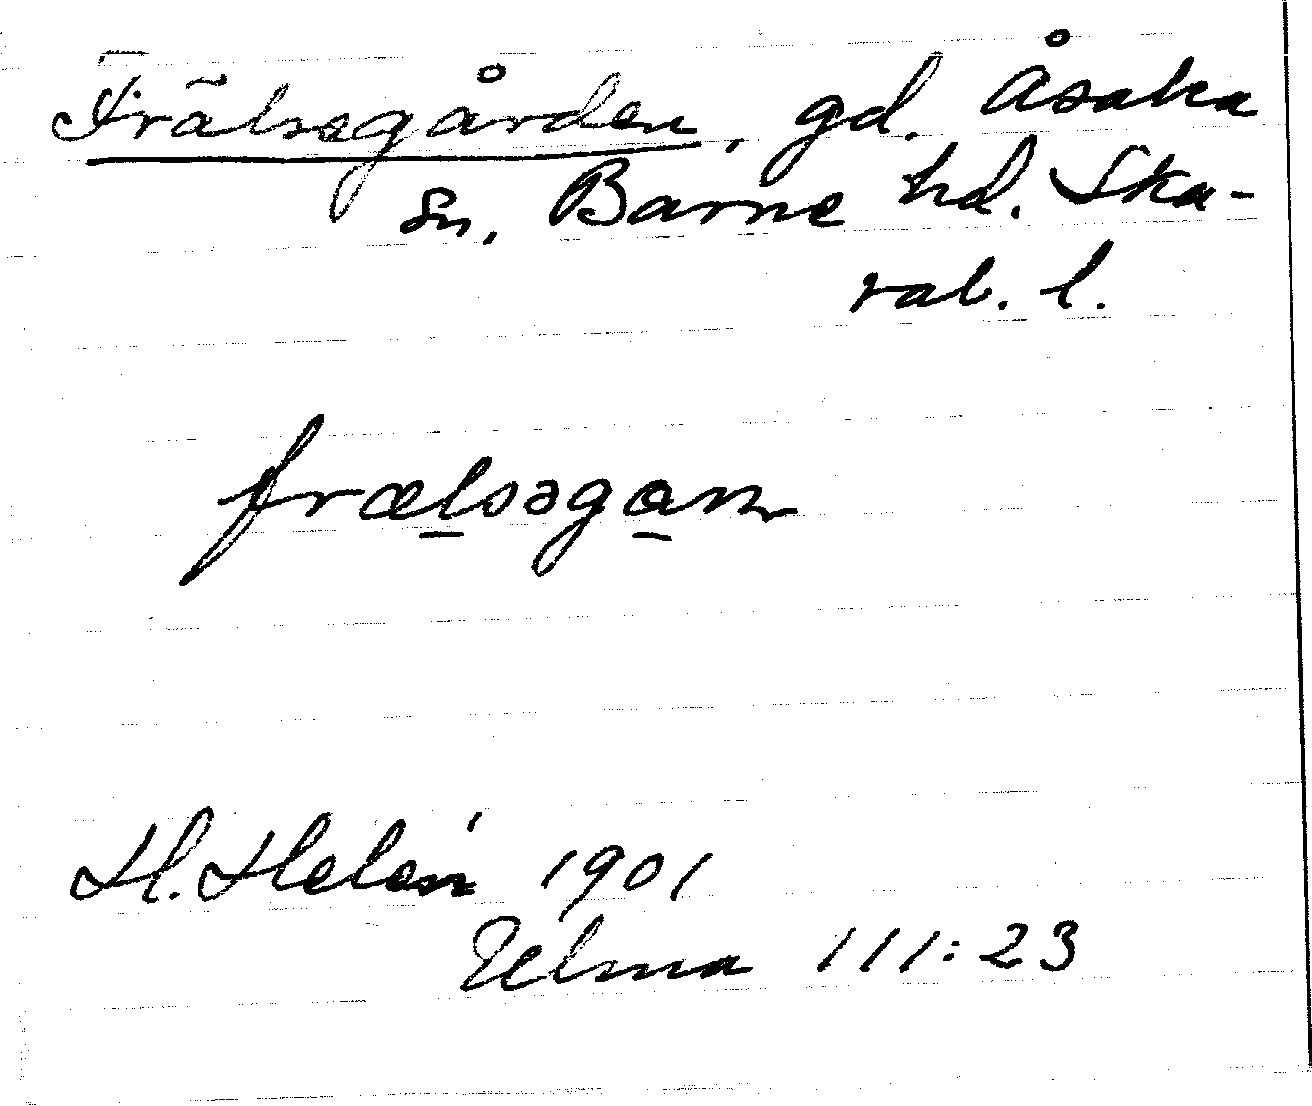 Frälsegården, gd. Åsaka
sn. Barne hd. Ska-
rab. l.
frælsəgan
H. Helén 1901
Ulma 111:23